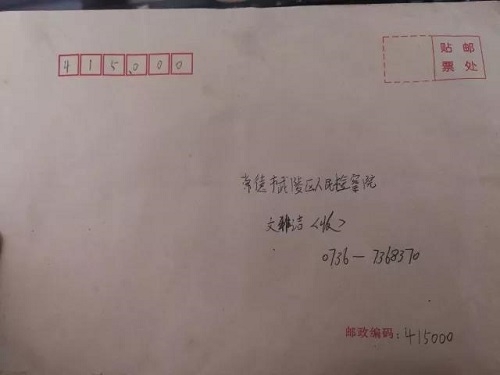 415000
贴邮
票处
常德市武陵区人民检察院
文雅洁（收）
0736—7368370
邮政编码：415000